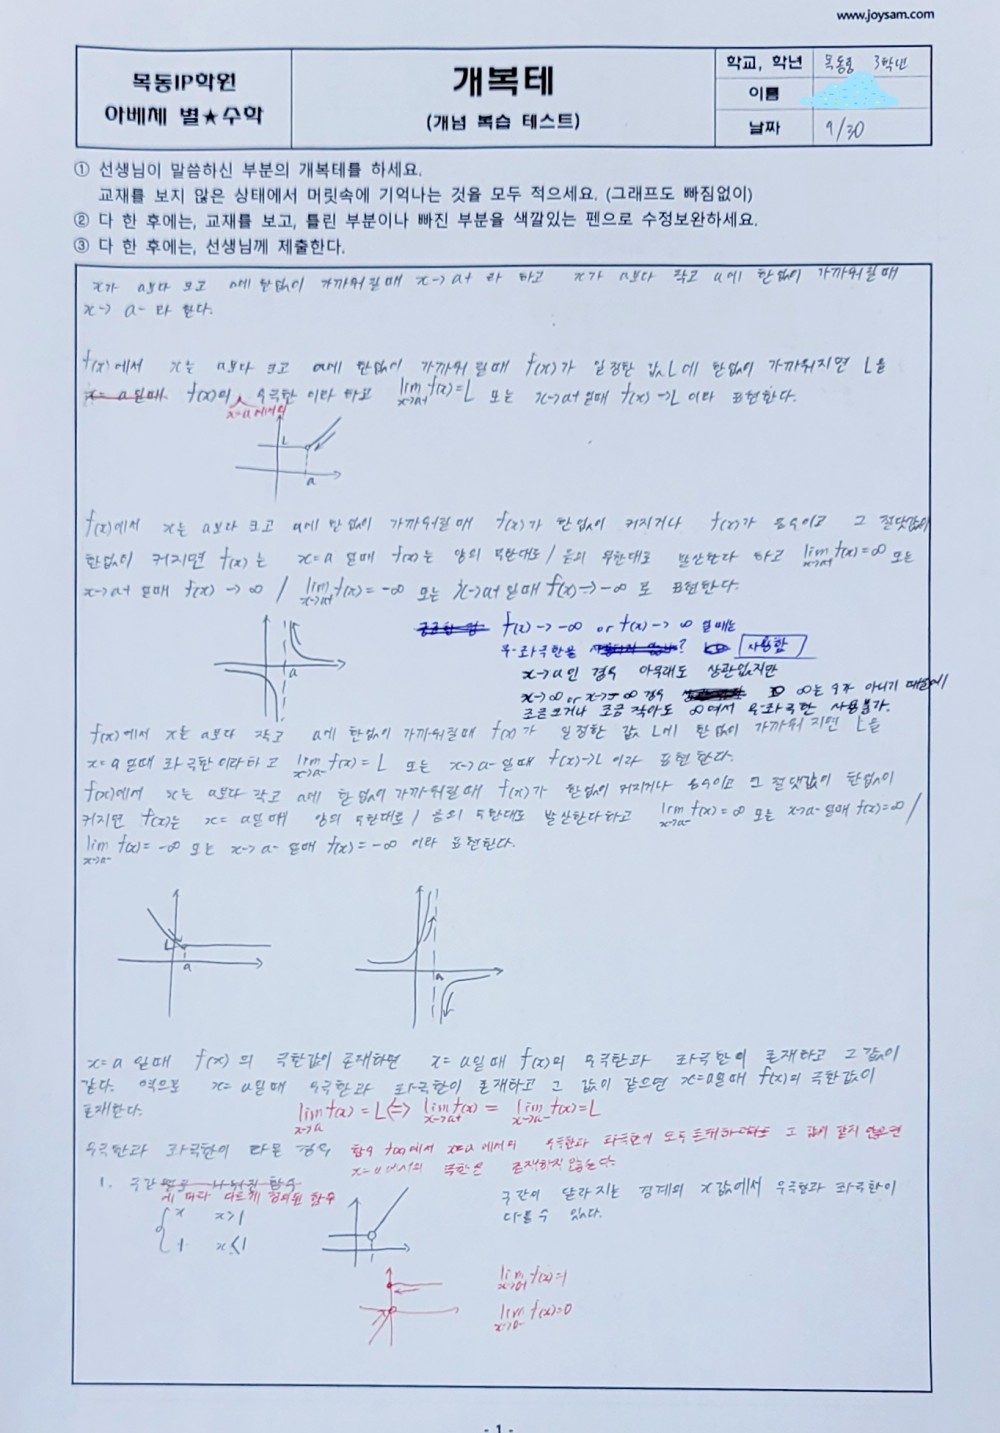 www.joysam.com
목동IP학원
아베체 별★수학
개복테
(개념 복습 테스트)
학교, 학년 목동중 3학년
이름
날짜 9/30
① 선생님이 말씀하신 부분의 개복테를 하세요.
교재를 보지 않은 상태에서 머릿속에 기억나는 것을 모두 적으세요. (그래프도 빠짐없이)
② 다 한 후에는, 교재를 보고, 틀린 부분이나 빠진 부분을 색깔있는 펜으로 수정보완하세요.
③ 다 한 후에는, 선생님께 제출한다.
x가 a보다 크고 a에 한없이 가까워질때 x→a+ 라 하고 x가 a보다 작고 a에 한없이 가까워질때
x→ a- 라 한다.
f(x)에서 x는 a보다 크고 a에 한없이 가까워 질때 f(x)가 일정한 값 L에 한없이 가까워지면 L을
x=a일때 f(x)의 우극한 이라 하고 lim x→a+ f(x)=L 또는 x→a+일때 f(x)→L 이라 표현한다.
x=a에서의
L
a
f(x)에서 x는 a보다 크고 a에 한없이 가까워질때 f(x)가 한없이 커지거나 f(x)가 음수이고 그 절댓값이
한없이 커지면 f(x)는 x=a일때 f(x)는 양의 무한대로/음의 무한대로 발산한다 하고 lim x→a+ f(x)=∞ 또는
x→a+ 일때 f(x)→∞ / lim x→a+ f(x)=-∞ 또는 x→a+일때 f(x)→-∞로 표현한다.
a
궁금한 점 f(x)→-∞ or f(x)→∞ 일때는
우·좌극한을 ? 사용함
x→a인 경우 아무래도 상관있지만
x→∞ or x→-∞ 경우 ∞는 수가 아니기 때문에
조금크거나 조금 작아도 ∞여서 우·좌극한 사용불가.
f(x)에서 x는 a보다 작고 a에 한없이 가까워질때 f(x)가 일정한 값 L에 한없이 가까워 지면 L을
x=a일때 좌극한이라하고 lim x→a- f(x)=L 또는 x→a-일때 f(x)→L 이라 표현한다.
f(x)에서 x는 a보다 작고 a에 한없이 가까워질때 f(x)가 한없이 커지거나 음수이고 그 절댓값이 한없이
커지면 f(x)는 x=a일때 양의 무한대로/음의 무한대로 발산한다하고 lim x→a- f(x)=∞ 또는 x→a-일때 f(x)=∞/
lim x→a- f(x)=-∞ 또는 x→a-일때 f(x)=-∞ 이라 표현한다.
L
a
a
x=a일때 f(x)의 극한값이 존재하면 x=a일때 f(x)의 우극한과 좌극한이 존재하고 그 값이
같다. 역으로 x=a일때 우극한과 좌극한이 존재하고 그 값이 같으면 x=a일때 f(x)의 극한값이
존재한다.
lim x→a f(x)=L⇔ lim x→a+ f(x)= lim x→a- f(x)=L
우극한과 좌극한이 다른 경우 함수 f(x)에서 x=a에서의 우극한과 좌극한이 모두 존재하더라도 그 값이 같지 않으면
x=a에서의 극한은 존재하지 않는다.
1. 구간별로 나눠진 함수
에 따라 다르게 정의된 함수
x x>1
1 x≤1
구간이 달라지는 경계의 x값에서 우극한과 좌극한이
다를수 있다.
lim x→0+ f(x)=1
lim x→0- f(x)=0
- 1 -